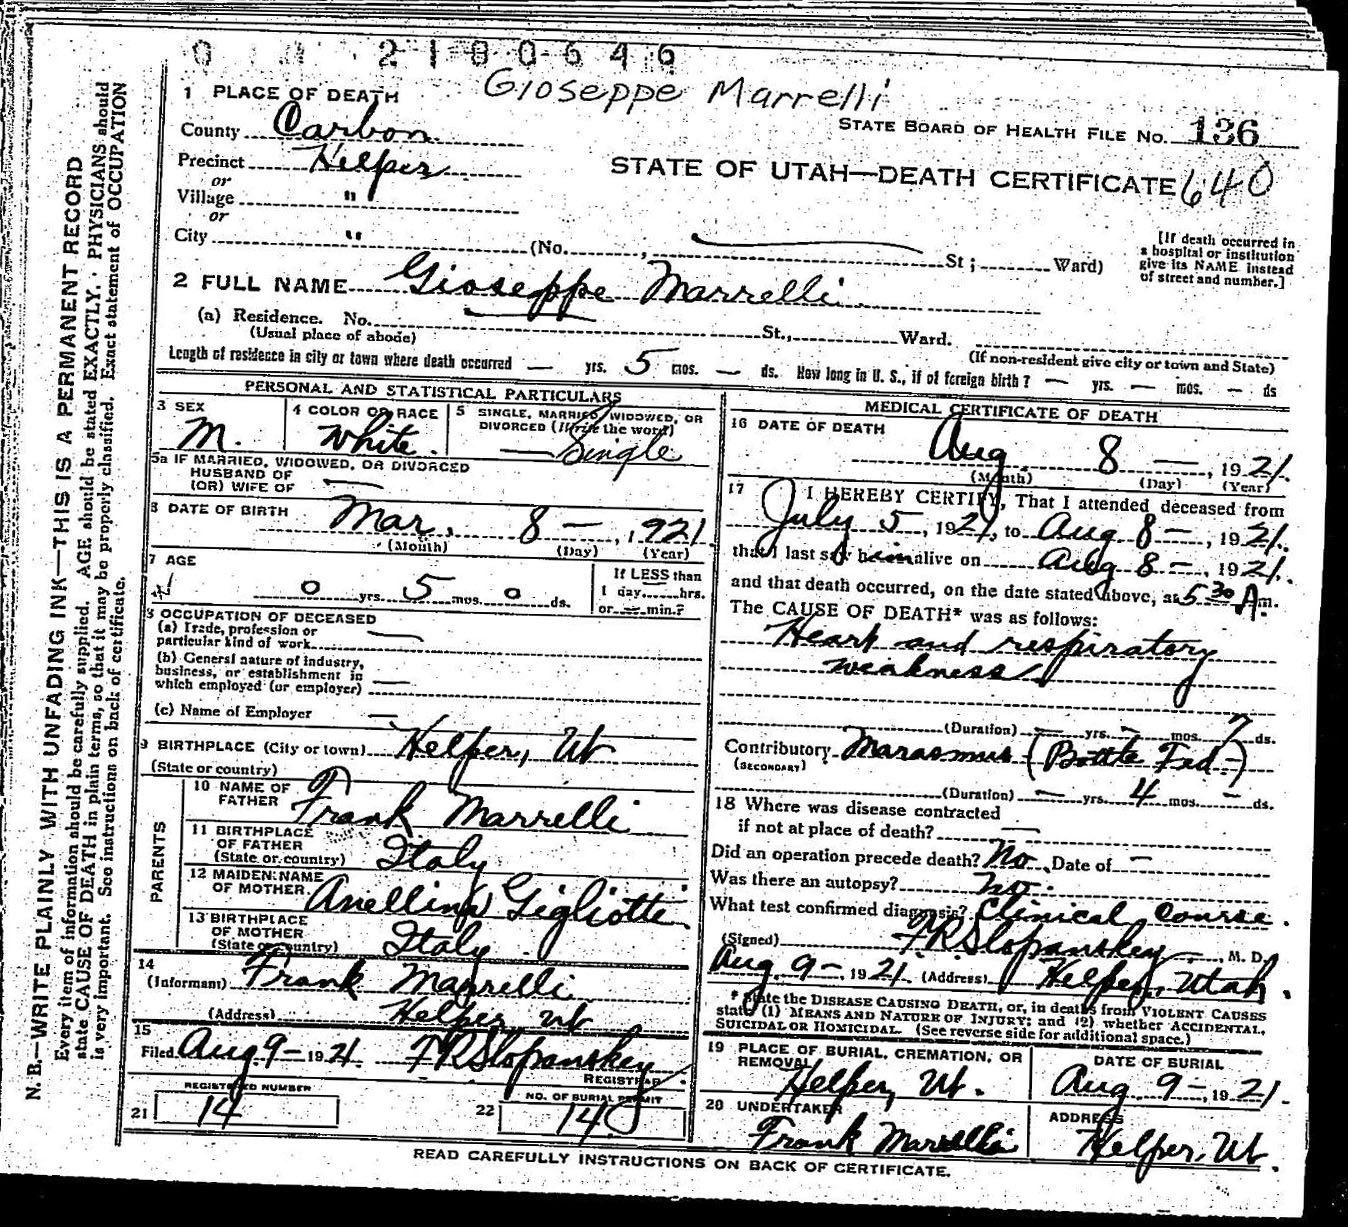 0 1 1 2 1 8 0 0 6 4 6
Gioseppe Marrelli
1 PLACE OF DEATH
STATE BOARD OF HEALTH FILE No. 136
County Carbon
Precinct Helper
STATE OF UTAH—DEATH CERTIFICATE 640
or
Village "
or
City " (No. , St ; Ward)
[If death occurred in
a hospital or institution
give its NAME instead
of street and number.]
2 FULL NAME Gioseppe Marrelli
(a) Residence. No. St., Ward.
(Usual place of abode)
(If non-resident give city or town and State)
Length of residence in city or town where death occurred — yrs. 5 mos. — ds. How long in U. S., if of foreign birth? — yrs. — mos. — ds
PERSONAL AND STATISTICAL PARTICULARS
3 SEX
M.
4 COLOR OR RACE
White.
5 SINGLE, MARRIED, WIDOWED, OR
DIVORCED (Write the word)
Single
5a IF MARRIED, WIDOWED, OR DIVORCED
HUSBAND OF
(OR) WIFE OF —
6 DATE OF BIRTH Mar. 8 — , 1921
(Month) (Day) (Year)
7 AGE
0 yrs. 5 mos. 0 ds.
If LESS than
1 day, hrs.
or — min.?
8 OCCUPATION OF DECEASED
(a) Trade, profession or
particular kind of work —
(b) General nature of industry,
business, or establishment in
which employed (or employer) —
(c) Name of Employer —
9 BIRTHPLACE (City or town) Helper, Ut
(State or country)
PARENTS
10 NAME OF
FATHER Frank Marrelli
11 BIRTHPLACE
OF FATHER
(State or country) Italy
12 MAIDEN NAME
OF MOTHER Anellina Gigliotti
13 BIRTHPLACE
OF MOTHER
(State or country) Italy
14
(Informant) Frank Marrelli
(Address) Helper Ut
15
Filed Aug 9 — 1921 F R Slopanskey
REGISTRAR
REGISTERED NUMBER
21 14
NO. OF BURIAL PERMIT
22 148
MEDICAL CERTIFICATE OF DEATH
16 DATE OF DEATH Aug. 8 — , 1921.
(Month) (Day) (Year)
17 I HEREBY CERTIFY, That I attended deceased from
July 5, 1921, to Aug 8 — , 1921.
that I last saw him alive on Aug 8 — , 1921.
and that death occurred, on the date stated above, at 5 30 A. m.
The CAUSE OF DEATH* was as follows:
Heart and respiratory
weakness
(Duration) — yrs. — mos. 7 ds.
Contributory Marasmus (Bottle Fed —)
(SECONDARY)
(Duration) — yrs. 4 mos. — ds.
18 Where was disease contracted
if not at place of death? —
Did an operation precede death? No. Date of —
Was there an autopsy? no.
What test confirmed diagnosis? Clinical course.
(Signed) F R Slopanskey — , M. D.
Aug 9 — 1921. (Address) Helper, Utah.
* State the DISEASE CAUSING DEATH, or, in deaths from VIOLENT CAUSES
state (1) MEANS AND NATURE OF INJURY; and (2) whether ACCIDENTAL,
SUICIDAL OR HOMICIDAL. (See reverse side for additional space.)
19 PLACE OF BURIAL, CREMATION, OR
REMOVAL
Helper, Ut.
DATE OF BURIAL
Aug 9 — , 1921.
20 UNDERTAKER
Frank Marrelli
ADDRESS
Helper, Ut.
READ CAREFULLY INSTRUCTIONS ON BACK OF CERTIFICATE.
N. B.—WRITE PLAINLY WITH UNFADING INK—THIS IS A PERMANENT RECORD
Every item of information should be carefully supplied. AGE should be stated EXACTLY. PHYSICIANS should
state CAUSE OF DEATH in plain terms, so that it may be properly classified. Exact statement of OCCUPATION
is very important. See instructions on back of certificate.